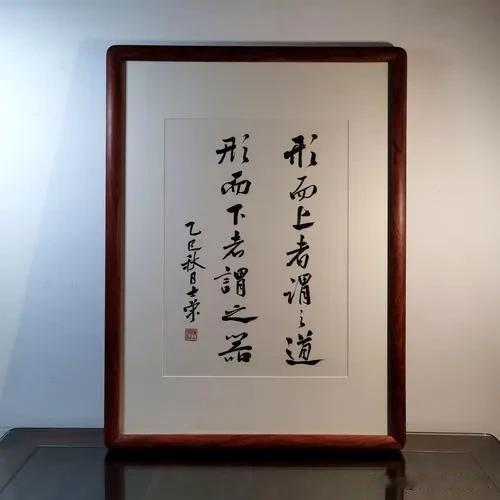 形而上者謂之道
形而下者謂之器
乙巳秋月士荣